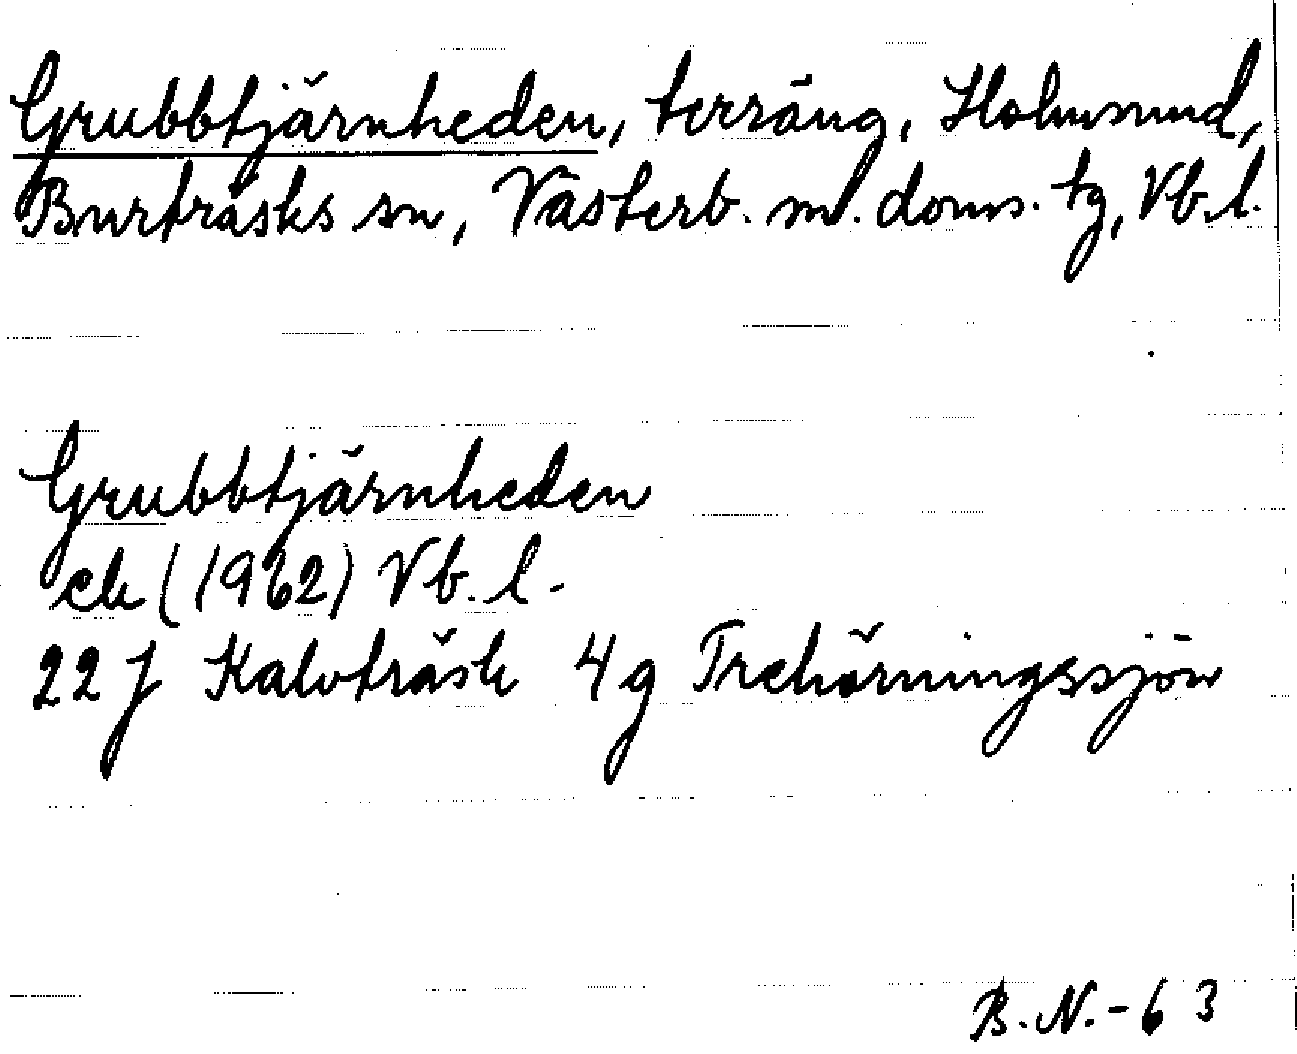 Grubbtjärnheden, terräng, Holmsund,
Burträsks sn, Västerb. m. doms. tg, Vb. l.
Grubbtjärnheden
ek (1962) Vb. l.
22 J Kalvträsk 4 g Trehörningssjön
B. N. - 63